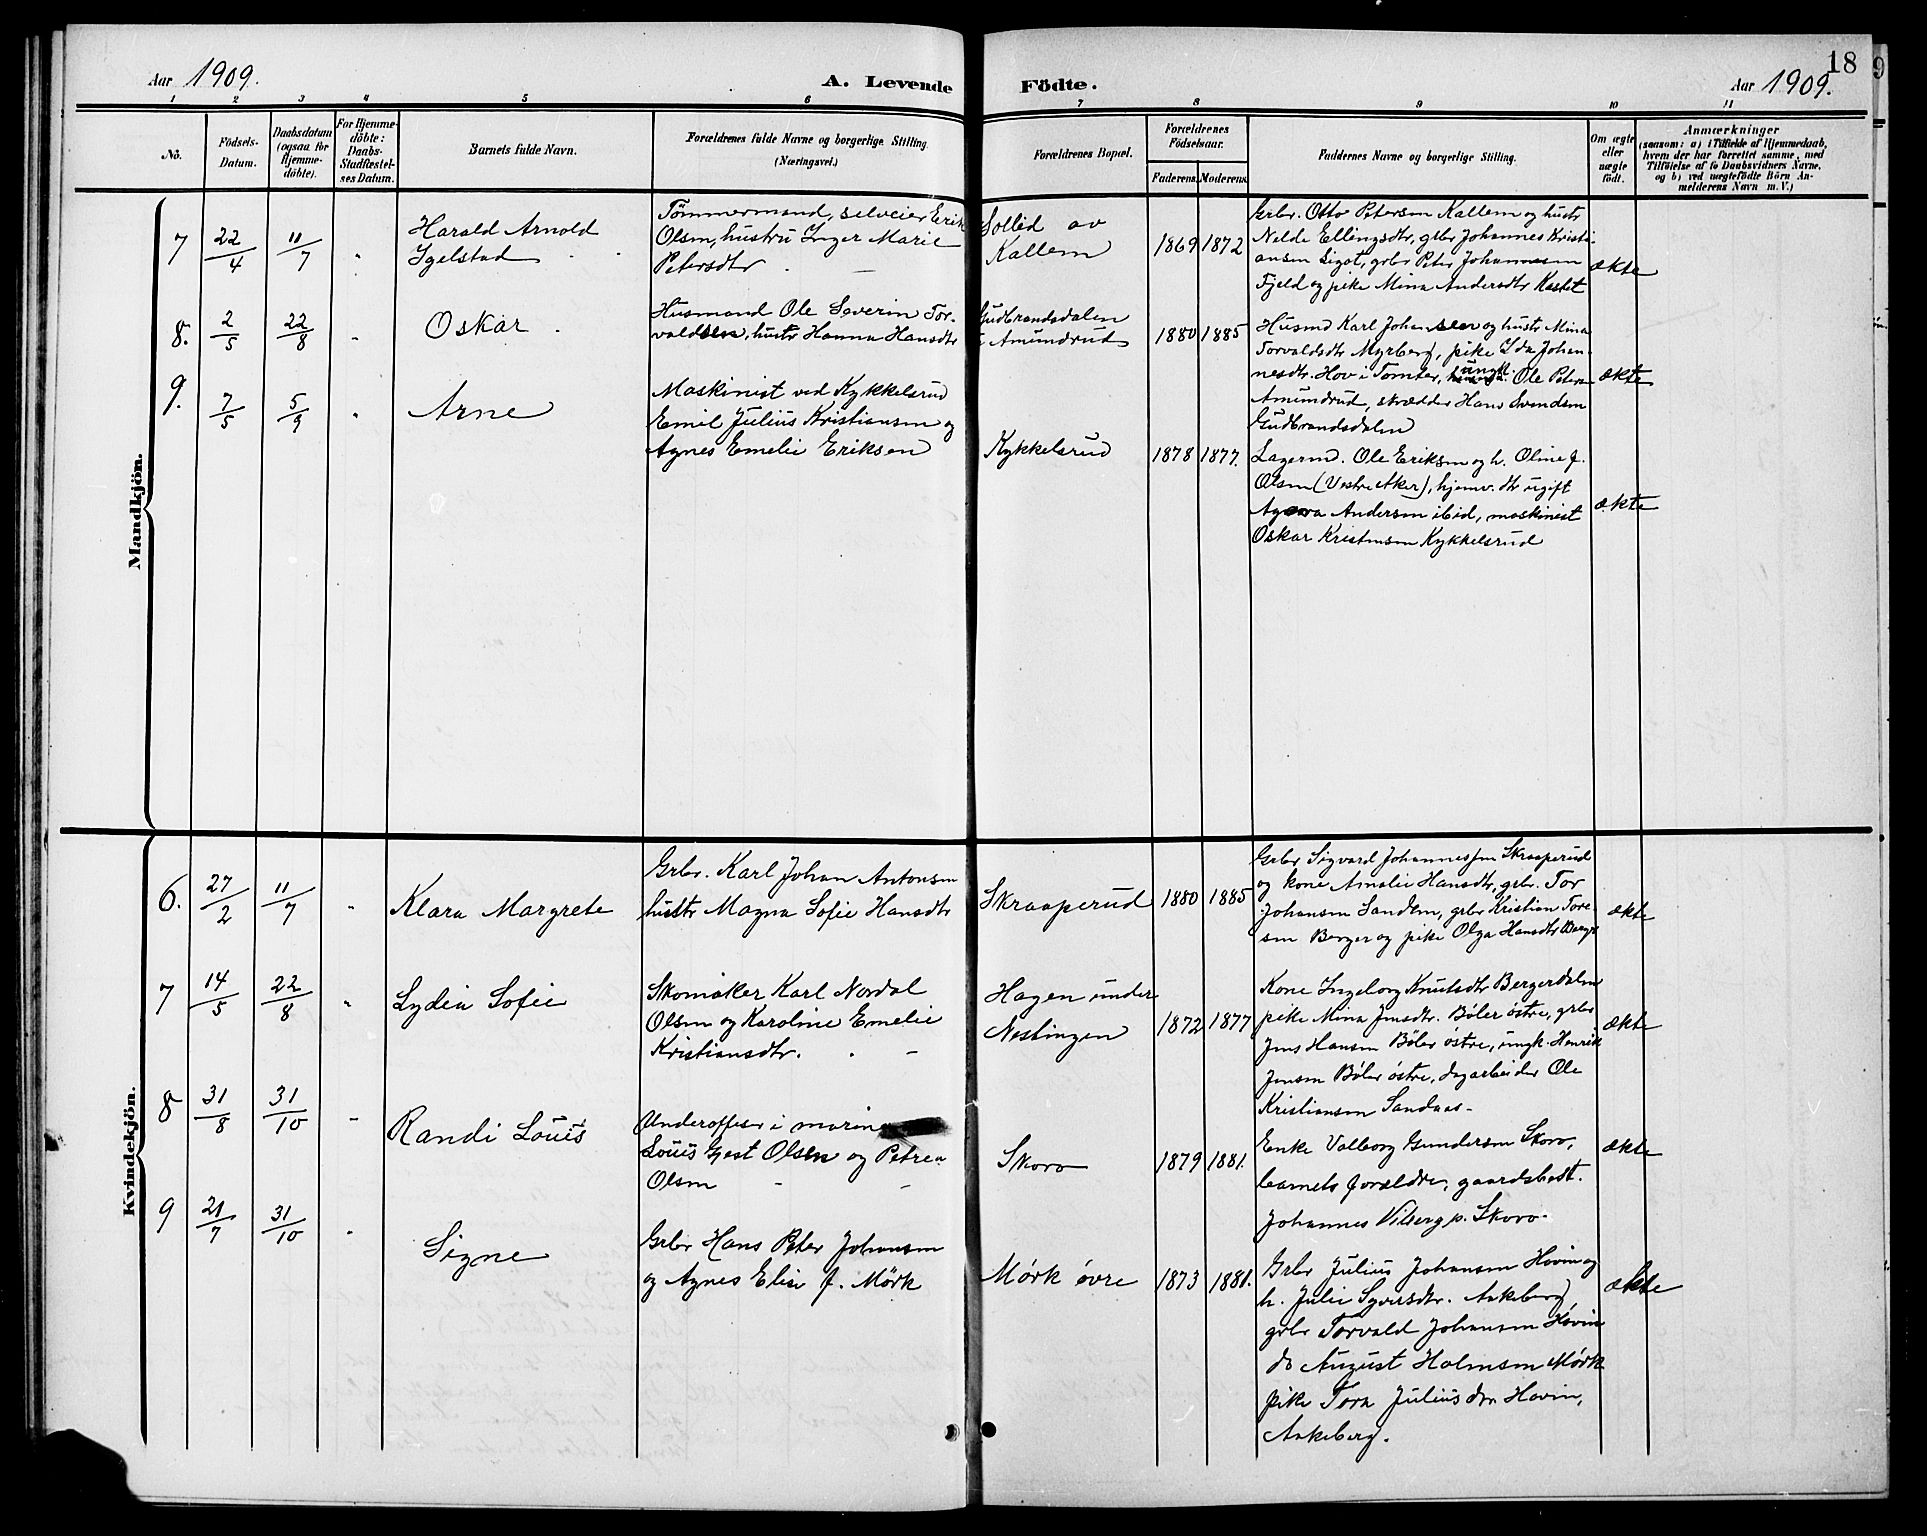 18
Aar 1909.
A. Levende
Födte.
Aar 1909.
1 2 3 4 5 6 7 8 9 10 11
No.
Födsels-
Datum.
Daabsdatum
(ogsaa for
Hjemme-
döbte).
For Hjemme-
döbte:
Daabs-
Stadfæstel-
ses Datum.
Barnets fulde Navn.
Forældrenes fulde Navne og borgerlige Stilling.
(Næringsvei.)
Forældrenes Bopæl.
Forældrenes
Födselsaar.
Faderens.
Moderens.
Faddernes Navne og borgerlige Stilling.
Om ægte
eller
uægte
födt.
Anmærkninger
(saasom: a) i Tilfælde af Hjemmedaab,
hvem der har forrettet samme, med
Tilföielse af to Daabsvidners Navne,
og b) ved uægtefödte Börn An-
melderens Navn m. V.)
Mandkjön.
7
22/4
11/7
Harald Arnold
Igelstad
Tömmermand, selveier Erik
Olsen, hustru Inger Marie
Petersdtr
Sollid av
Kallem
1869
1872
Grbr. Otto Petersen Kallem og hustr
Nelde Ellingsdtr, grbr Johannes Kristi-
ansen Ligot, grbr Peter Johannesen
Fjeld og pike Mina Andersdtr Kastet
ækte
8.
2/5
22/8
Oskar
Husmand Ole Severin Tor-
valdsen, hustr Hanna Hansdtr
Gudbrandsdalen
i Amundrud
1880
1885
Husmd Karl Johansen og hustr Mina
Torvaldsdtr Myrberg, pike Ida Johan-
nesdtr. Hov i Tomter, ungk. Ole Petersen
Amundrud, skrædder Hans Svendsen
Gudbrandsdalen
ækte
9.
7/5
5/9
Arne
Maskinist ved Kykkelsrud
Emil Julius Kristiansen og
Agnes Emelie Eriksen
Kykkelsrud
1878
1877.
Lagermd. Ole Eriksen og h. Oline f.
Olsen (Vestre Aker), hjemv. dtr ugift
Andersen ibid, maskinist
Oskar Kristensen Kykkelsrud
ækte
Kvindekjön.
6.
27/2
11/7
Klara Margrete
Grbr. Karl Johan Antonsen
hustr Magna Sofie Hansdtr
Skraaperud
1880
1885
Grbr Sigvard Johannessen Skraaperud
og kone Amalie Hansdtr, grbr. Tor
Johansen Sandem, grbr Kristian Tore-
sen Berger og pike Olga Hansdtr Berger
ækte
7
14/5
22/8
Lydia Sofie
Skomaker Karl Nordal
Olsen og Karoline Emelie
Kristiansdtr.
Hagen under
Nestingen
1872
1877
Kone Ingeborg Knutsdtr Bergerdalen
pike Mina Jensdtr. Böler östre, grbr
Jens Hansen Böler östre, ungk. Henrik
Jensen Böler östre, dagarbeider Ole
Kristiansen Sandaas.
ækte
8
31/8
31/10
Randi Louis
Underofficer i marinen
Louis Gest Olsen og Petrea
Olsen
Skoro
1879
1881.
Enke Valborg Gundersen Skoro,
barnets forældre, gaardsbest.
Johannes Viberg p. Skoro.
ækte
9
21/7
31/10
Signe
Grbr Hans Peter Johansen
og Agnes Elise f. Mörk
Mörk övre
1873
1881.
Grbr Julius Johansen Hovin og
h. Julie Syversdtr. Askeberg
grbr Torvald Johansen Hovin
do August Holmsen Mörk
pike Tora Juliusdtr Hovin,
Askeberg.
ækte